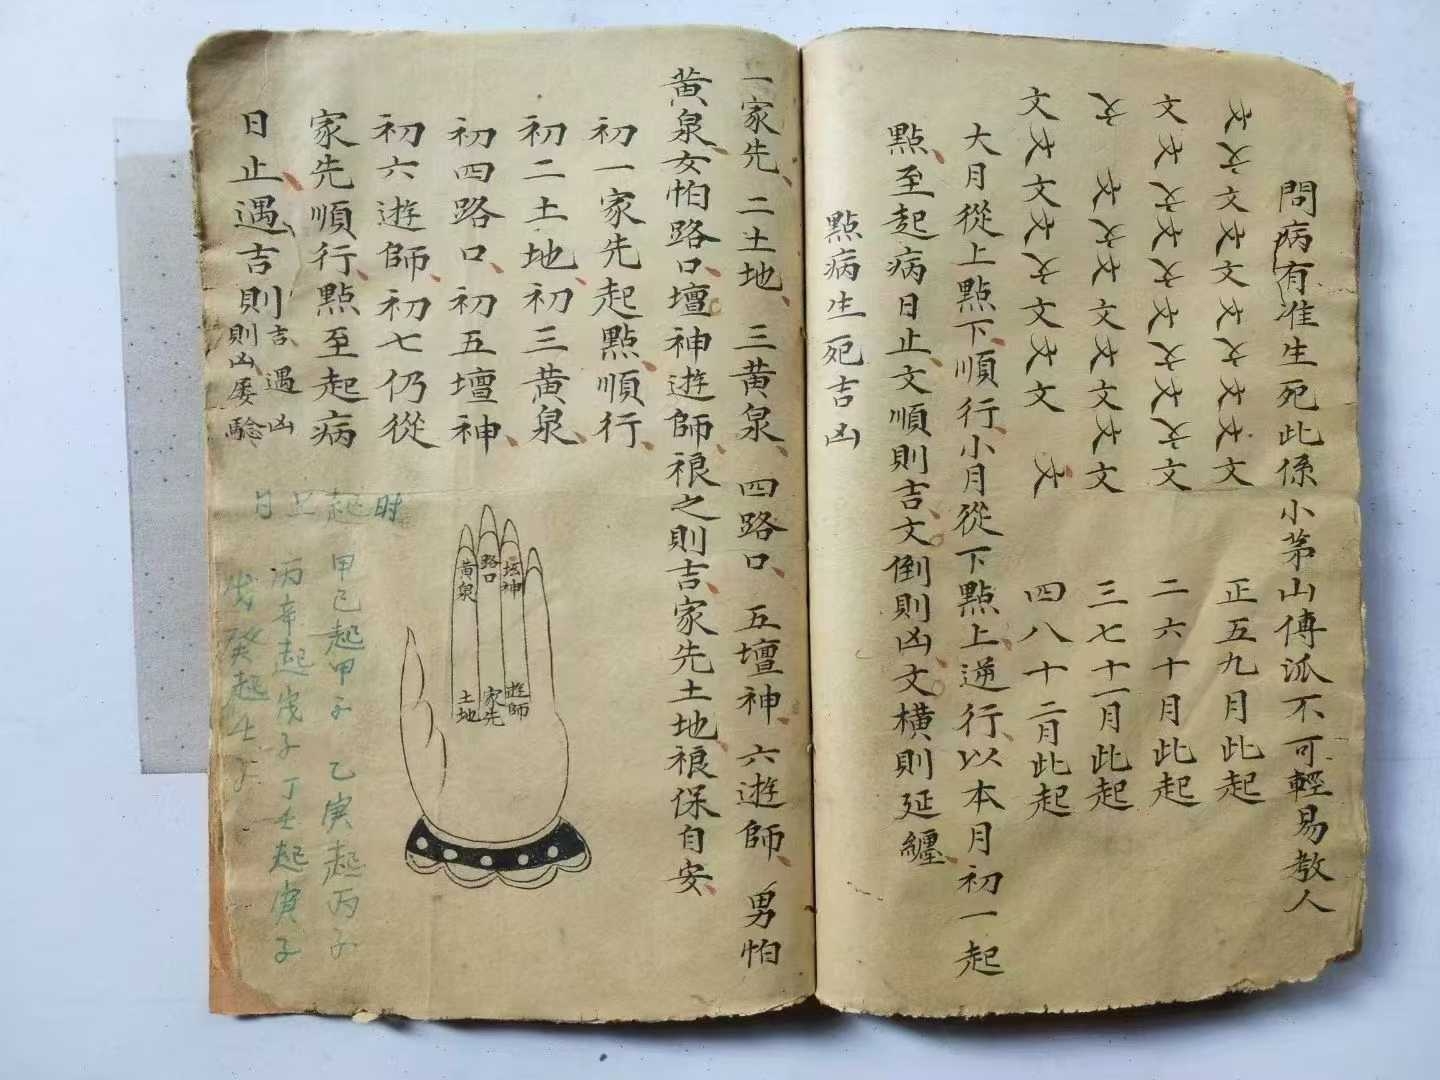 問病有准生死此係小茅山傳派不可輕易教人
正五九月此起
文文
二六十月此起
三七十一月此起
四八十二月此起
大月從上點下順行小月從下點上逆行以本月初一起
點至起病日止文順則吉文倒則凶文橫則延纏
點病生死吉凶
一家先二土地三黃泉四路口五壇神六遊師男怕
黃泉女怕路口壇神遊師禳之則吉家先土地禳保自安
初一家先起點順行
初二土地初三黃泉
初四路口初五壇神
初六遊師初七仍從
家先順行點至起病
日止遇吉則吉遇凶
則凶屢驗
黃泉
路口
壇神
土地
家先
遊師
日上起時
甲己起甲子 乙庚起丙子
丙辛起戊子 丁壬起庚子
戊癸起壬子